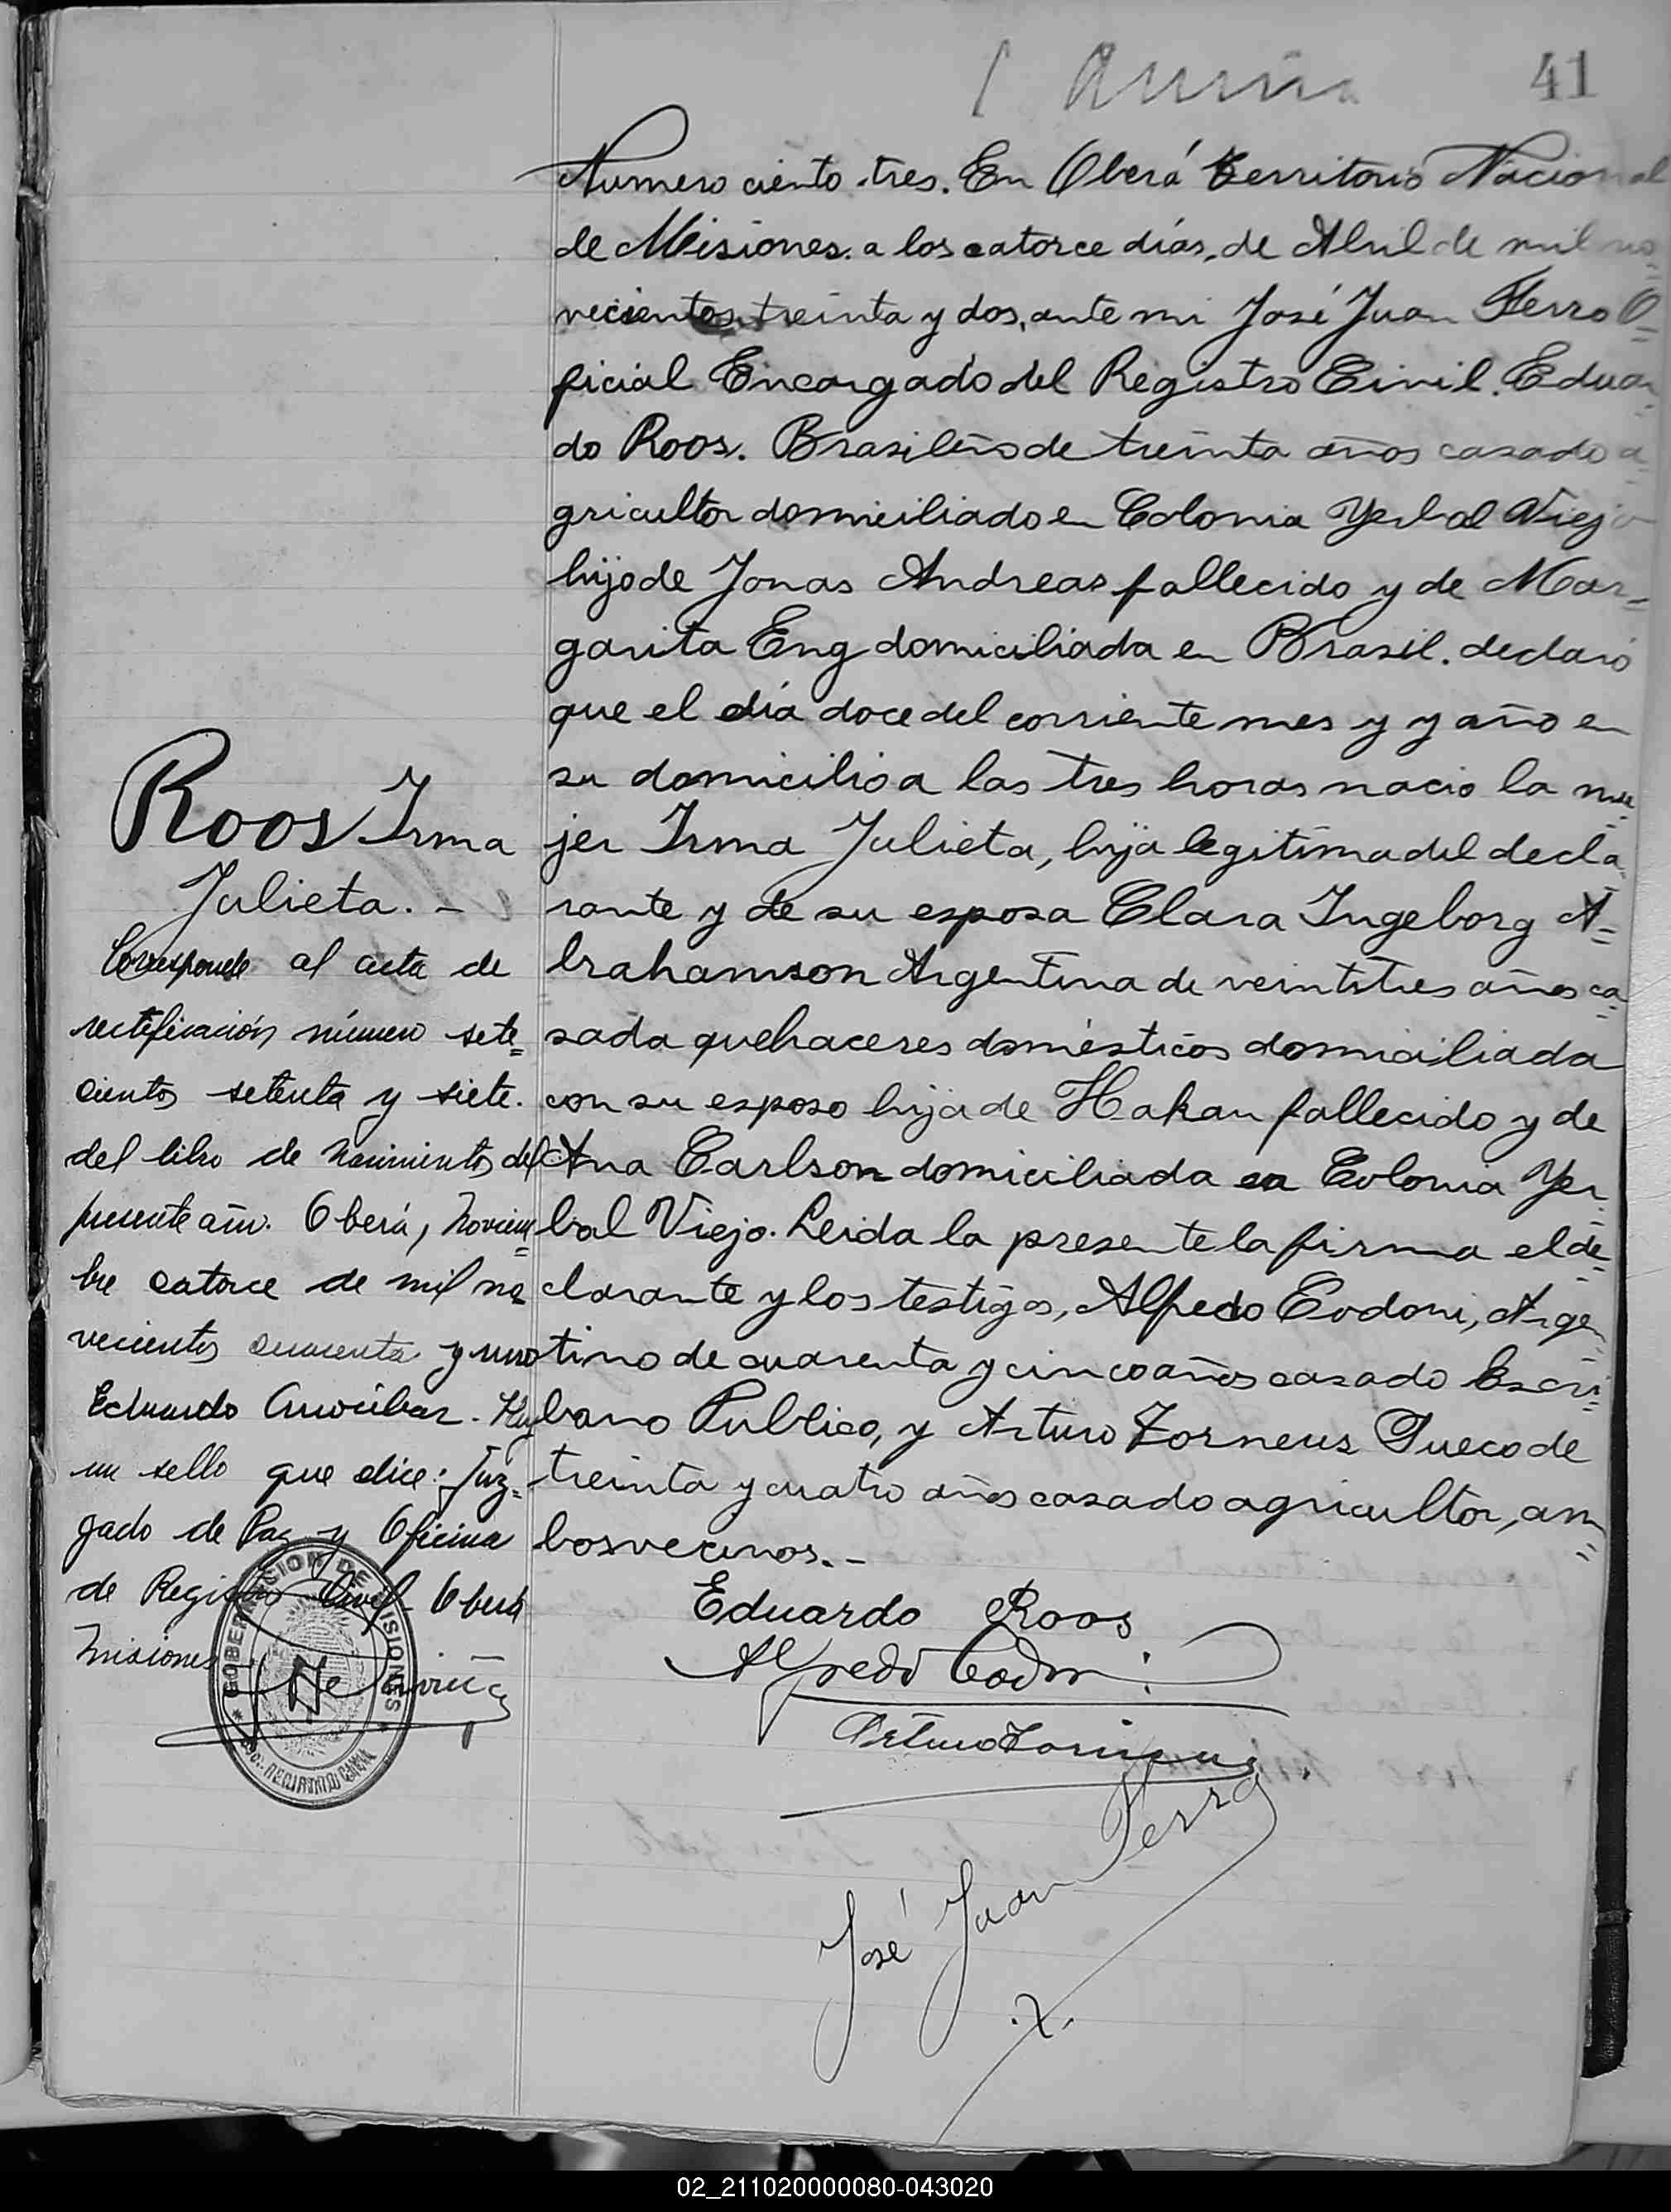 41
Numero ciento tres. En Oberá territorio Nacional
de Misiones. a los catorce días, de Abril de mil no=
vecientos treinta y dos, ante mi José Juan Ferro O=
ficial Encargado del Registro Civil. Eduar
do Roos. Brasileño de treinta años casado a=
gricultor domiciliado en Colonia Yerbal Viejo
hijo de Jonas Andreas fallecido y de Mar=
garita Eng domiciliada en Brasil. declaró
que el día doce del corriente mes y y año en
su domicilio a las tres horas nacio la mu=
jer Irma Julieta, hija legitima del decla=
rante y de su esposa Clara Ingeborg A=
brahamson Argentina de veintitres años ca=
sada quehaceres domésticos domiciliada
con su esposo hija de Hakan fallecido y de
Ana Carlson domiciliada en Colonia Yer=
bal Viejo. Leida la presente la firma el de=
clarante y los testigos, Alfredo Codoni, Argen=
tino de cuarenta y cinco años casado Escri=
bano Publico, y Arturo Zorneus Sueco de
treinta y cuatro años casado agricultor, am=
bos vecinos. -
Eduardo Roos
Alfredo Codoni
Arturo Zorneus
José Juan Ferro
Roos Irma
Julieta. -
Corresponde al acta de
rectificación número sete=
cientos setenta y siete.
del libro de nacimientos del
presente año. Oberá, Noviem=
bre catorce de mil no=
vecientos cuarenta y uno
Eduardo Hay
un sello que dice: Juz=
gado de Paz y Oficina
de Registro Civil - Oberá
Misiones
GOBERNACION DE MISIONES
REGISTRO CIVIL
02_211020000080-043020